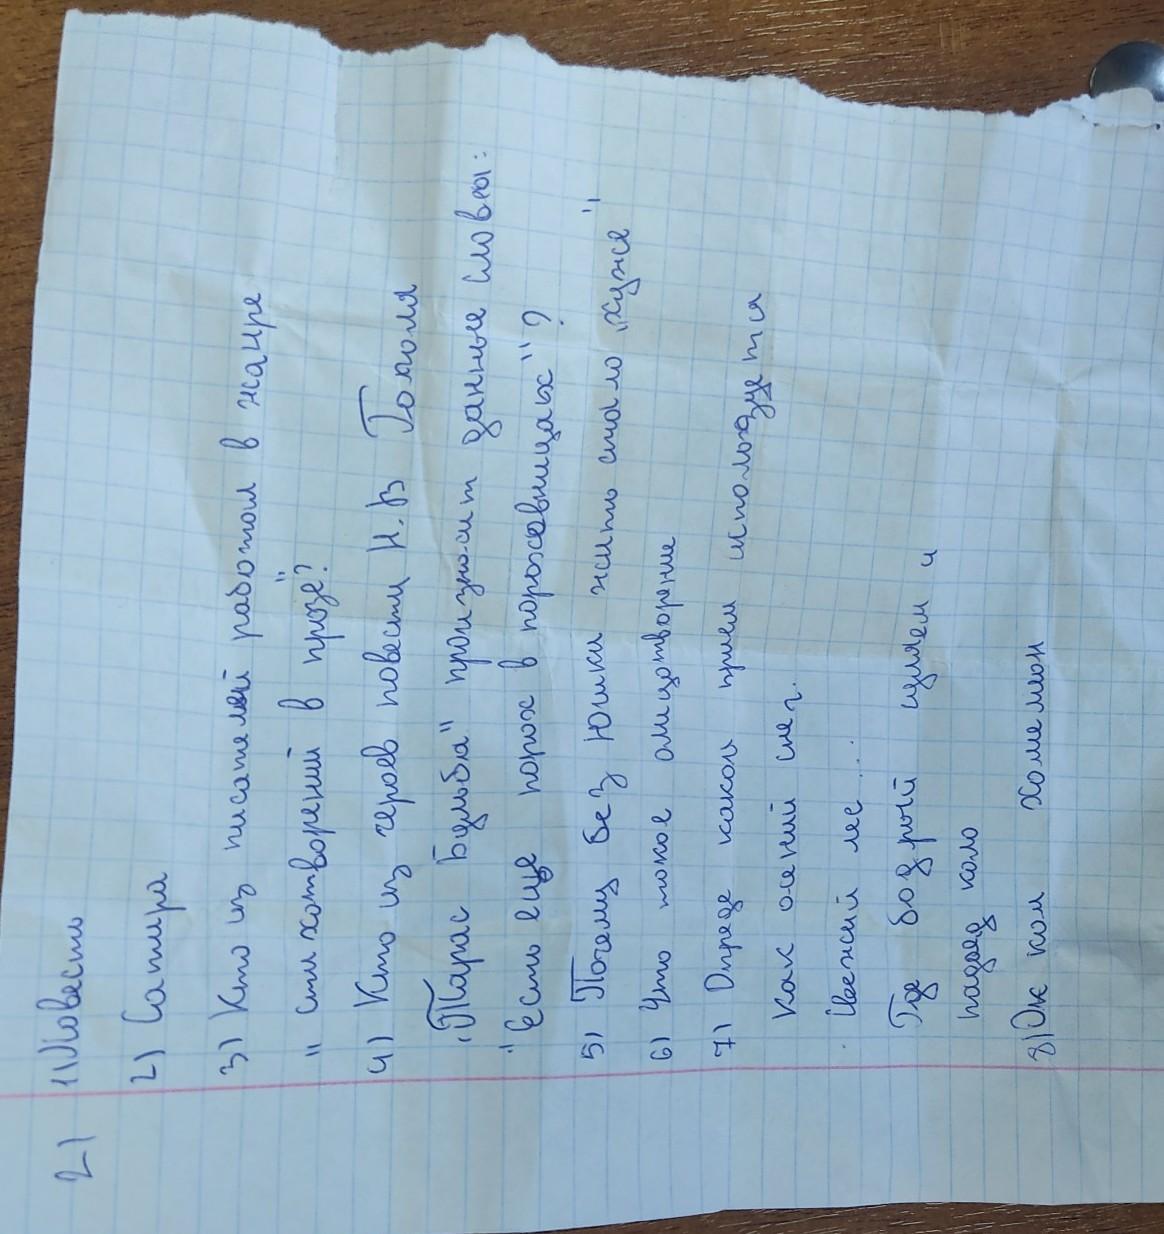 2) 1) Повесть
2) Сатира
3) Кто из писателей работал в жанре
" стихотворений в прозе"?
4) Кто из героев повести Н.В Гоголя
"Тарас Бульба" произносит данные словы:
"Есть еще порох в пороховницах"?
5) Почему без Юшки жить стало "хуже"
6) Что такое олицотворение
7) Опреде какой прием исползуется
Как осений снег.
Свежий лес...
Где бодрый
падаед коло
8) Хамелион